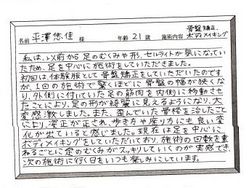 名前 平澤 悠佳 様 年齢 21歳 施術内容 骨盤矯正、ボディメイキング
私は、以前から足のむくみや形、セルライトが気になってい
たため、足を中心に施術をしていただきました。
初回は体験版として骨盤矯正をしていただいたのです
が、1回の施術で驚くほどに骨盤の横がなくな
り、外側に付いていた足の筋肉を内側に移動させ
たことにより、足の形が綺麗に見えるようになり、大
変感動しました。また、歪んでいた骨格を治したこと
により姿勢が正され、歩き方や座り方にも良い変
化が出ていると感じました。現在は足を中心に
ボディメイキングをしていただいており、施術の回数を重
ねるごとに足のむくみがスッキリしていくのが実感でき
次の施術に行く日をいつも楽しみにしています。